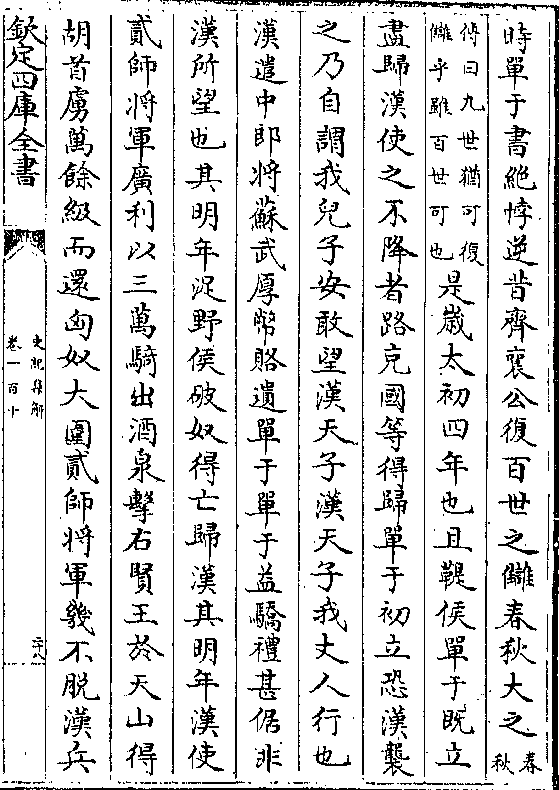 時單于書絶悖逆昔齊襄公復百世之讎春秋大之春秋
傳曰九世猶可復讎乎雖百世可也是歲太初四年也且鞮侯單于既立
盡歸漢使之不降者路充國等得歸單于初立恐漢襲
之乃自謂我兒子安敢望漢天子漢天子我丈人行也
漢遣中郎將蘇武厚幣賂遺單于單于益驕禮甚倨非
漢所望也其明年浞野侯破奴得亡歸漢其明年漢使
貳師將軍廣利以三萬騎出酒泉擊右賢王於天山得
胡首虜萬餘級而還匈奴大圍貳師將軍幾不脱漢兵
欽定四庫全書
史記集解
卷一百十
二十八